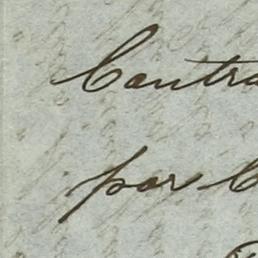 Contra
por C